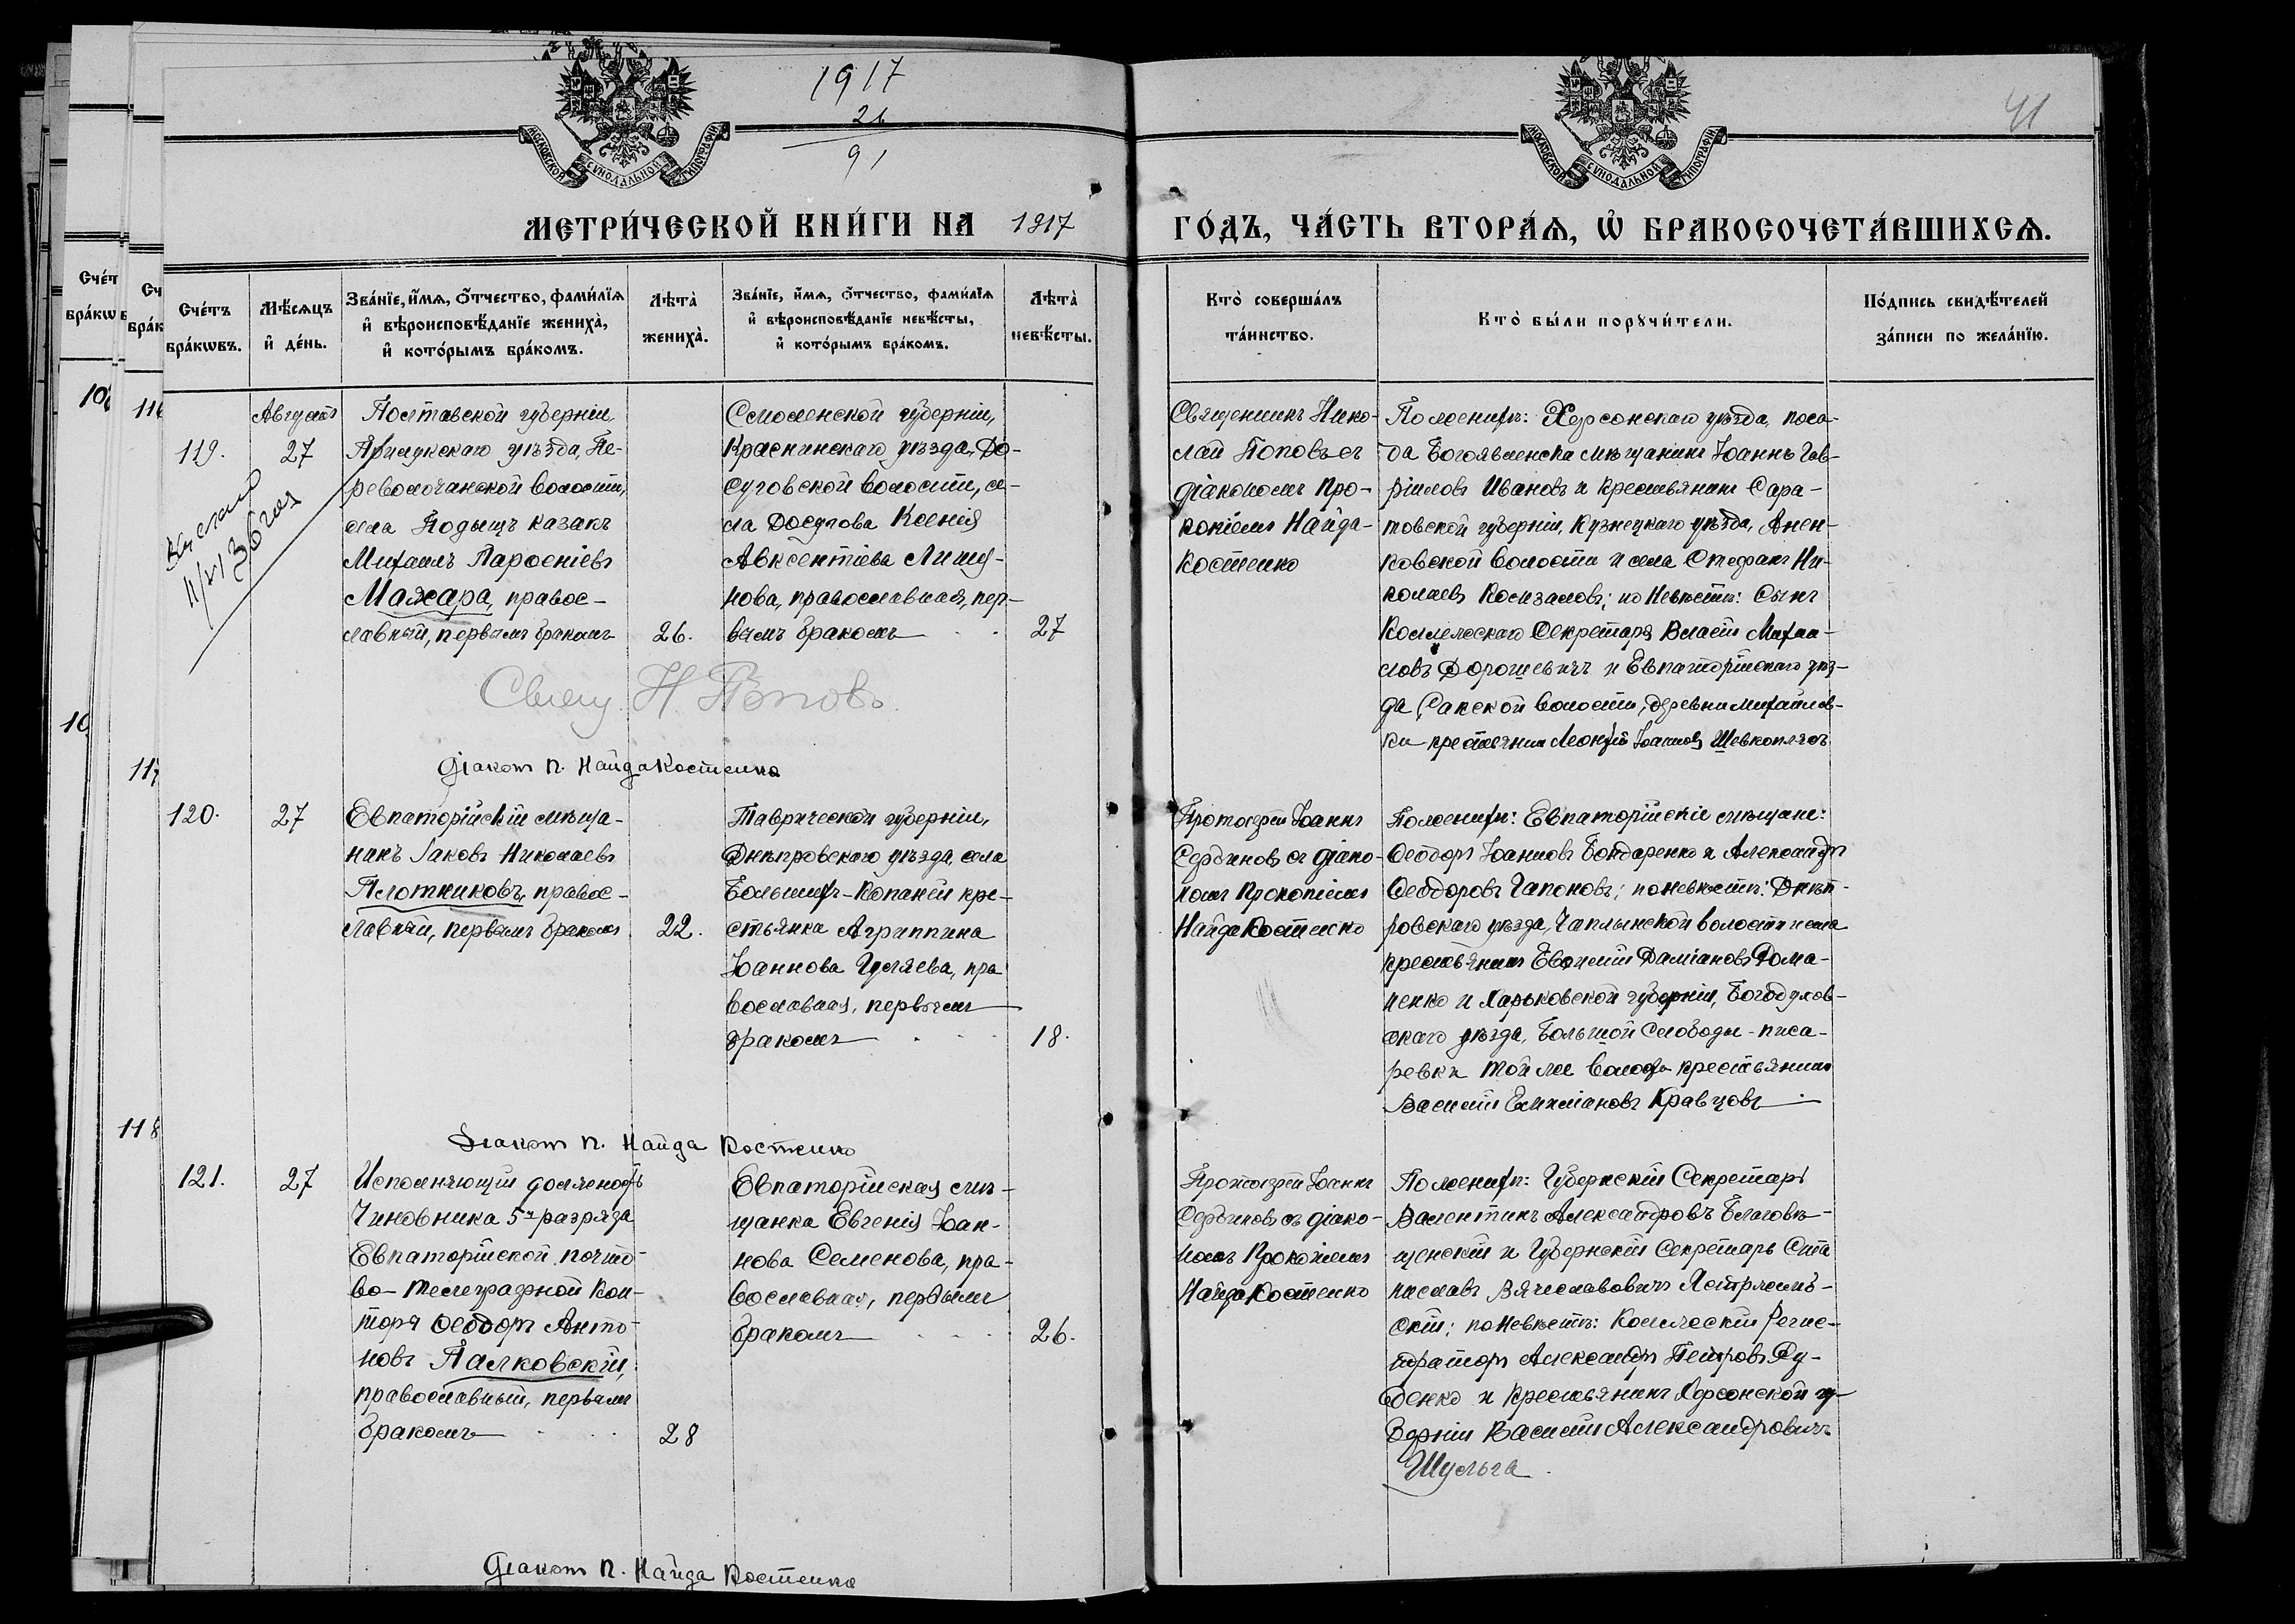 1917
26
91
41
МОСКОВСКОЙ СѴНОДАЛЬНОЙ ТИПОГРАФІИ
МОСКОВСКОЙ СѴНОДАЛЬНОЙ ТИПОГРАФІИ
МЕТРИ́ЧЕСКОЙ КНИ́ГИ НА 1917
ГО́ДЪ, ЧА́СТЬ ВТОРА́Ѧ, Ѡ҆ БРАКОСОЧЕТА́ВШИХСѦ.
Сче́тъ
бра́кѡвъ.
Мѣ́сѧцъ
и҆ де́нь.
Зва́нїе, и҆́мѧ, ѻ҆́тчество, фами́лїѧ
и҆ вѣроисповѣ́данїе жениха̀,
и҆ кото́рымъ бра́комъ.
Лѣ́та̀
жениха̀.
Зва́нїе, и҆́мѧ, ѻ҆́тчество, фами́лїѧ
и҆ вѣроисповѣ́данїе невѣ́сты,
и҆ кото́рымъ бра́комъ.
Лѣ́та̀
невѣ́сты.
Кто̀ соверша́лъ
та́инство.
Кто̀ бы́ли порꙋчи́тели.
По́дпись свидѣ́телей
за́писи по жела́нїю.
119.
Августъ
27
Полтавской губерніи,
Прилукскаго уѣзда, Пе-
револочанской волости,
села Подыщъ казакъ
Михаилъ Парѳеніевъ
Мажара, правос-
лавный, первымъ бракомъ
26.
Смоленской губерніи,
Краснинскаго уѣзда, До-
суговской волости, се-
ла Досугова Ксенія
Авксентіева
нова, православная, пер-
вымъ бракомъ
27
Священникъ Нико-
лай Поповъ съ
діакономъ Про-
копіемъ Найда-
Костенко
По женихѣ: Херсонскаго уѣзда, поса-
да Богоявленска мѣщанинъ Іоаннъ Гав-
ріиловъ Ивановъ и крестьянинъ Сара-
товской губерніи, Кузнецкаго уѣзда, Анен-
ковской волости и села Стефанъ Ни-
колаевъ; по невѣстѣ: Сынъ
Коллежскаго Секретаря Михаи-
ловъ Дорошевичъ и Евпаторійскаго уѣз-
да, Сакской волости, деревни Михайлов-
ки крестьянинъ Леонтій Іоанновъ Шевкоплясъ
11/VI 36 года
Свящ. Н. Поповъ.
Діаконъ П. Найда Костенко
120.
27
Евпаторійскій мѣща-
нинъ Іаковъ Николаевъ
Плотниковъ, правос-
лавный, первымъ бракомъ
22.
Таврической губерніи,
Днѣпровскаго уѣзда, села
Большихъ-Копаней кре-
стьянка Агриппина
Іоаннова Гуляева, пра
вославная, первымъ
бракомъ
18.
Протоіерей Іоаннъ
Сербиновъ съ діако-
номъ Прокопіемъ
Найда Костенко
По женихѣ: Евпаторійскіе мѣщане:
Ѳеодоръ Іоанновъ Бондаренко и Александръ
Ѳеодоровъ Гапоновъ; по невѣстѣ: Днѣп-
ровскаго уѣзда, Чаплынской волости и села
крестьянинъ Даміановъ Дома-
ненко и Харьковской губерніи, Богодухов-
скаго уѣзда, Большой Слободы-Писа-
ревки той же волости крестьянинъ
Василій Емиліановъ Кравцовъ
Діаконъ П. Найда Костенко
121.
27
Исполняющій должность
Чиновника 5го разряда
Евпаторійской почто-
во-телеграфной Кон-
торы Ѳеодоръ Анто-
новъ Палковскій,
православный, первымъ
бракомъ
28
Евпаторійская мѣ-
щанка Евгенія Іоан-
нова Семенова, пра-
вославная, первымъ
бракомъ
26.
Протоіерей Іоаннъ
Сербиновъ съ діако-
номъ Прокопіемъ
Найда Костенко
По женихѣ: Губернскій Секретарь
Валентинъ Александровъ Благовѣ-
щенскій и Губернскій Секретарь Ста
ниславъ Вячеславовичъ Ястржемб-
скій; по невѣстѣ: Коллежскій Регис-
траторъ Александръ Петровъ Ду-
бенко и крестьянинъ Херсонской гу-
берніи Василій Александровичъ
Шульга.
Діаконъ П. Найда Костенко
Сче́т
бра́кѡ
116
117
118